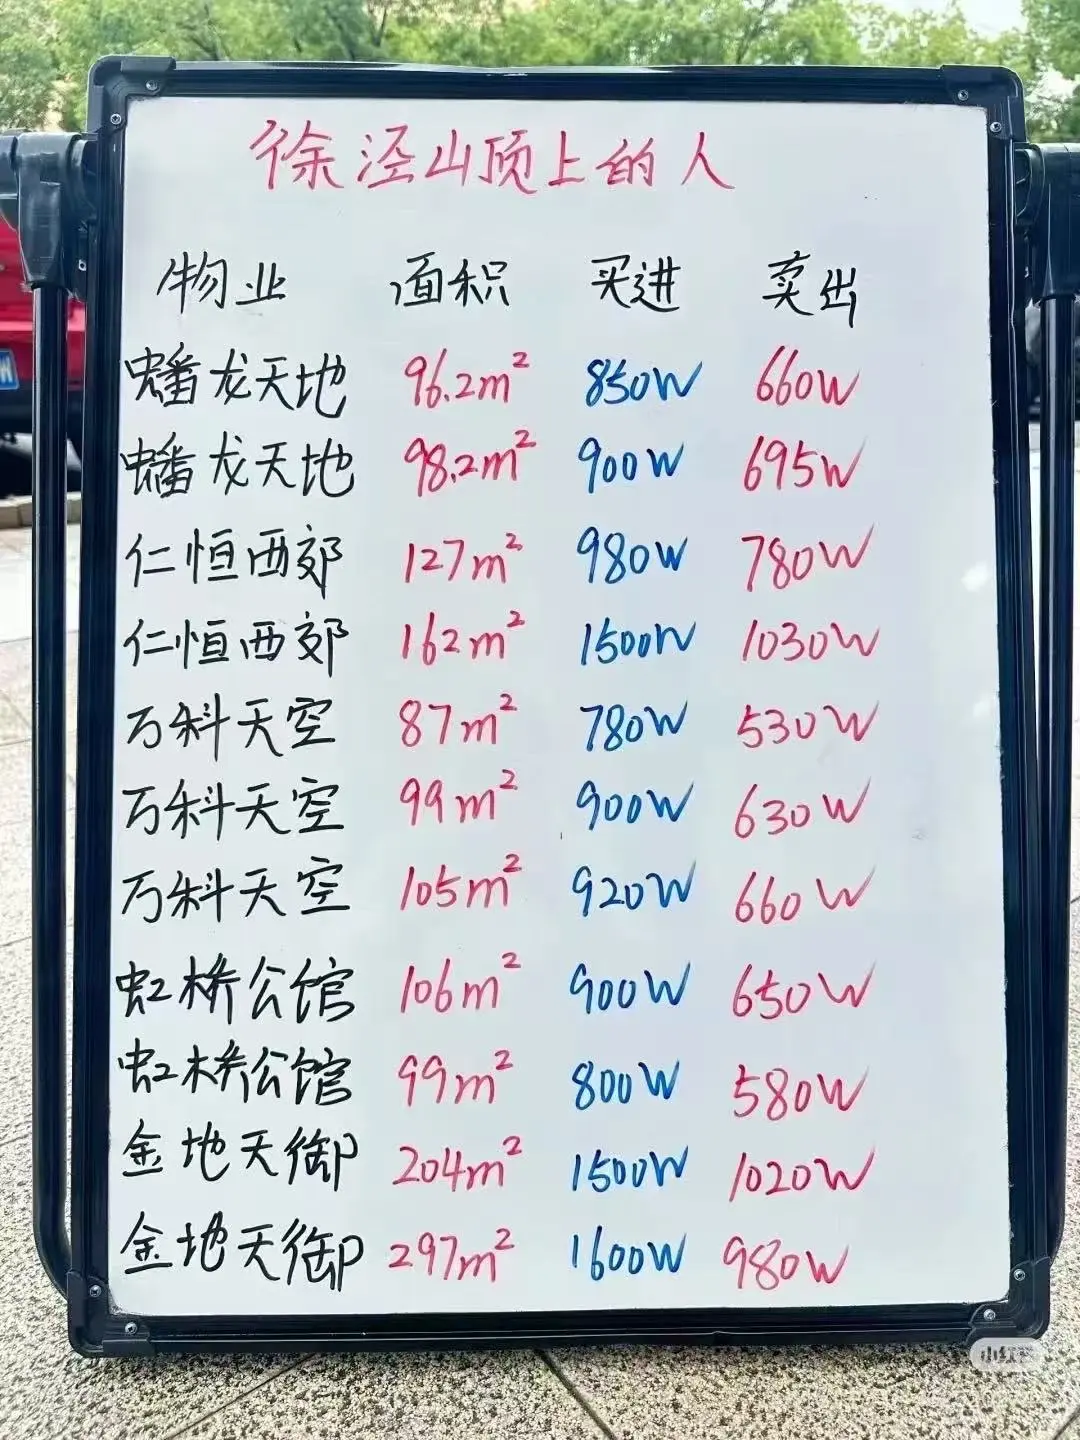 徐泾山顶上的人
物业 面积 买进 卖出
蟠龙天地 96.2m² 850W 660W
蟠龙天地 98.2m² 900W 695W
仁恒西郊 127m² 980W 780W
仁恒西郊 162m² 1500W 1030W
万科天空 87m² 780W 530W
万科天空 99m² 900W 630W
万科天空 105m² 920W 660W
虹桥公馆 106m² 900W 650W
虹桥公馆 99m² 800W 580W
金地天御 204m² 1500W 1020W
金地天御 297m² 1600W 980W
小红书